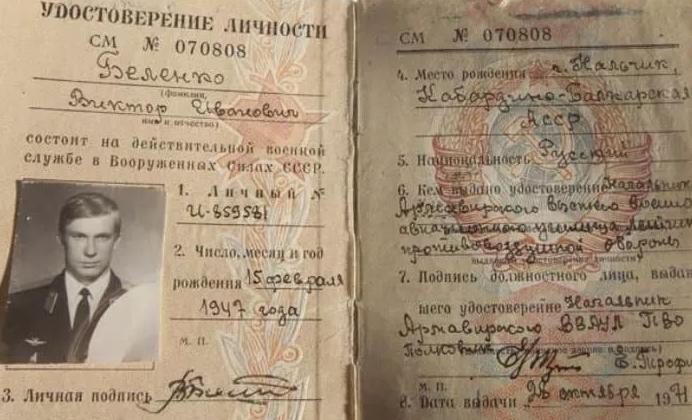 УДОСТОВЕРЕНИЕ ЛИЧНОСТИ
СМ № 070808
Беленко
(фамилия,
Виктор Иванович
имя и отчество)
состоит на действительной военной
службе в Вооруженных Силах СССР.
1. Личный №
И-859581
2. Число, месяц и год
рождения 15 февраля
1947 года
М. П.
3. Личная подпись
СМ № 070808
4. Место рождения г. Нальчик,
Кабардино-Балкарская
АССР
5. Национальность Русский
6. Кем выдано удостоверение Начальник
Армавирского высшего военно
авиационного училища
противовоздушной обороны
7. Подпись должностного лица, выдав
шего удостоверение Начальник
Армавирского ВВАУЛ ПВО
Полковник
М. П.
8. Дата выдачи 26 октября 1971